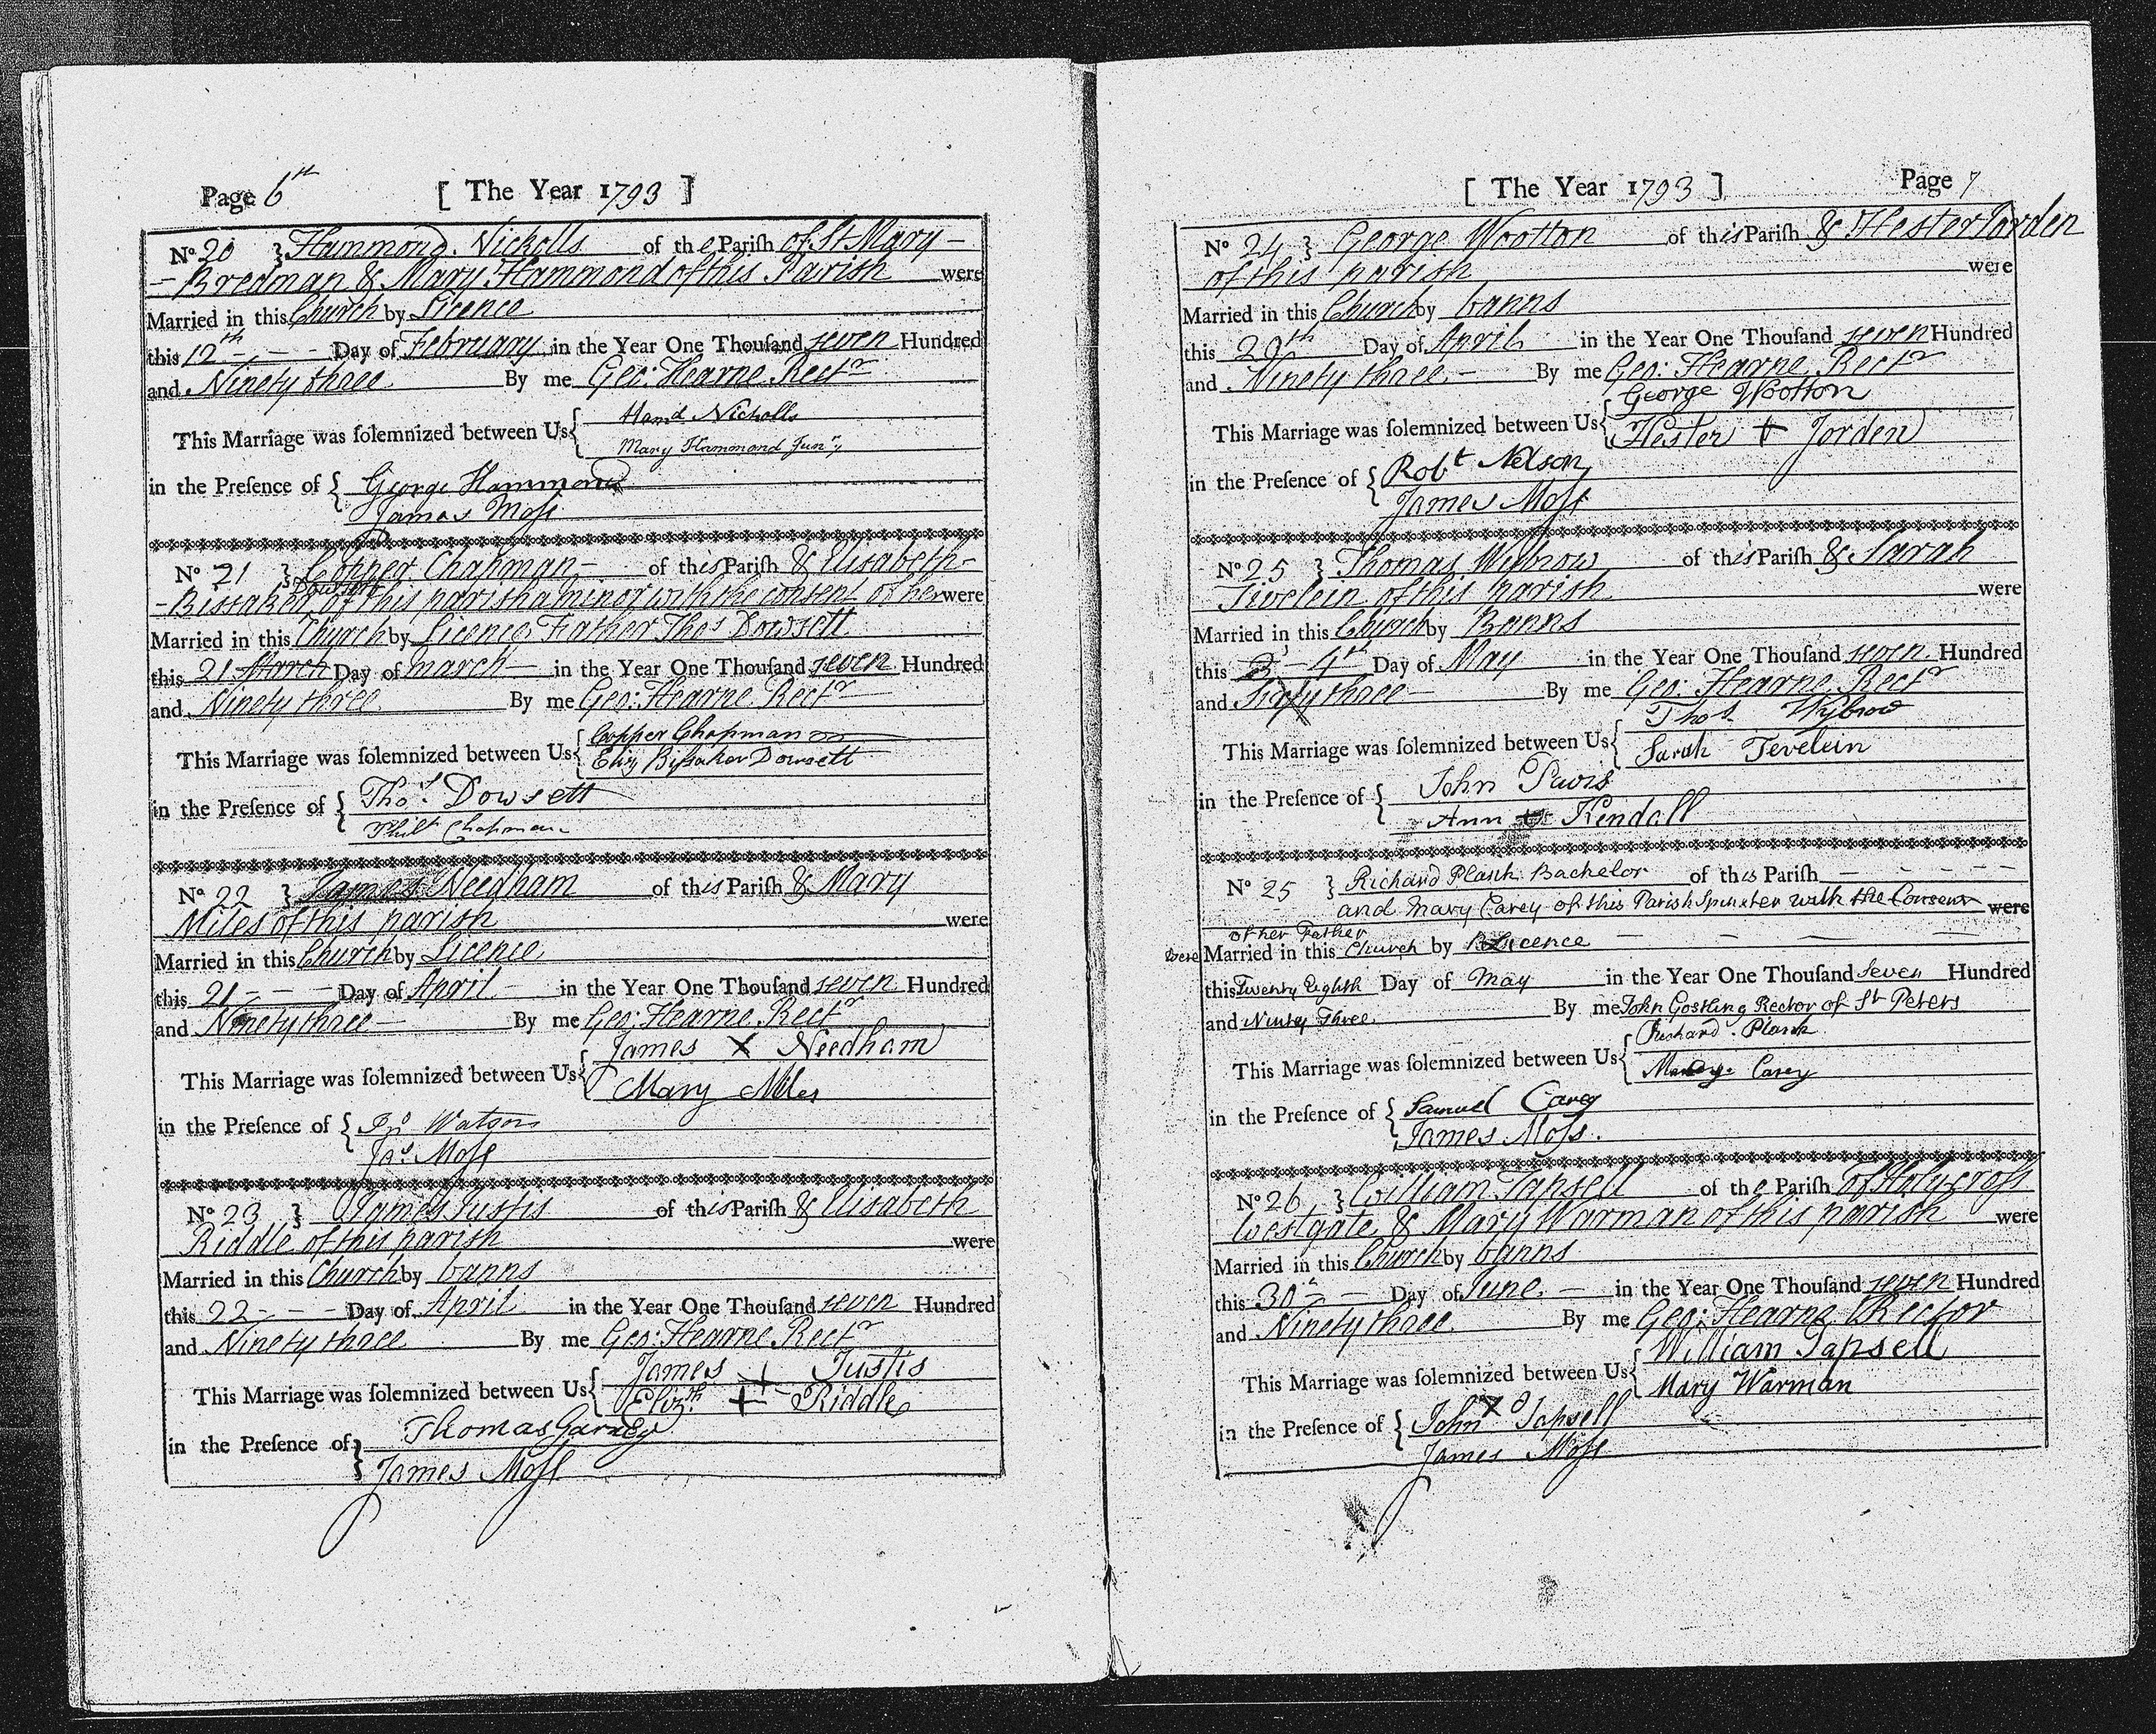 Page 6th [ The Year 1793 ]
No. 20 } Hammond Nicholls of the Pariſh of St Mary -
- Bredman & Mary Hammond of this Parish were
Married in this Church by Licence
this 12th - - - Day of February in the Year One Thouſand seven Hundred
and Ninety three By me Geo: Hearne Rectr
This Marriage was ſolemnized between Us { Hamd Nicholls
Mary Hammond Junr
in the Preſence of { George Hammond
James Moſs
No. 21 } Copper Chapman - of this Pariſh & Elisabeth -
Dowsett
- Bissaker of this parish a minor with the consent of her were
Married in this Church by Licence Father Thos Dowsett
this 21 March Day of march - in the Year One Thouſand seven Hundred
and Ninety three By me Geo: Hearne Rectr
This Marriage was ſolemnized between Us { Copper Chapman
Eliz Biſsaker Dowsett
in the Preſence of { Thos. Dowsett
Philt Chapman
No. 22 } James Needham of this Pariſh & Mary
Miles of this parish were
Married in this Church by Licence
this 21 - - - Day of April - in the Year One Thouſand seven Hundred
and Ninety three - By me Geo: Hearne Rectr
This Marriage was ſolemnized between Us { James X Needham
Mary Miles
in the Preſence of { Jno Watson
Jas Moſs
No. 23 } James Justis of this Pariſh & Elisabeth
Riddle of this parish were
Married in this Church by banns
this 22 - - - Day of April in the Year One Thouſand seven Hundred
and Ninety three By me Geo: Hearne Rectr
This Marriage was ſolemnized between Us { James + Justis
Elizth + Riddle
in the Preſence of } Thomas Garney
James Moſs
[ The Year 1793 ] Page 7
No 24 } George Wootton of this Pariſh & Hester Jorden
of this parish were
Married in this Church by banns
this 29th Day of April in the Year One Thouſand seven Hundred
and Ninety three - By me Geo: Hearne Rectr
This Marriage was ſolemnized between Us { George Wootton
Hester + Jorden
in the Preſence of { Robt Nelson
James Moſs
No 25 } Thomas Wybrow of this Pariſh & Sarah
Tivelein of this parish were
Married in this Church by Banns
this 3 - 4th Day of May in the Year One Thouſand seven Hundred
and three - By me Geo: Hearne Rectr
This Marriage was ſolemnized between Us { Thos. Wybrow
Sarah Tevelein
in the Preſence of { John Davis
Ann + Kendall
No 25 } Richard Plank Bachelor of this Pariſh - - - -
and Mary Carey of this Parish Spinster with the Consent were
of her Father
were Married in this Church by Licence - - - -
this Twenty Eighth Day of May in the Year One Thouſand Seven Hundred
and Ninety Three By me John Gostling Rector of St Peters
This Marriage was ſolemnized between Us { Richard Plank
Mary Carey
in the Preſence of { Samuel Carey
James Moſs.
No 26 } William Tapsell of the Pariſh of Holycroſs
Westgate & Mary Warman of this parish were
Married in this Church by banns
this 30th - Day of June - in the Year One Thouſand seven Hundred
and Ninety three By me Geo: Hearne Rector
This Marriage was ſolemnized between Us { William Tapsell
Mary Warman
in the Preſence of { John X Tapsell
James Moſs